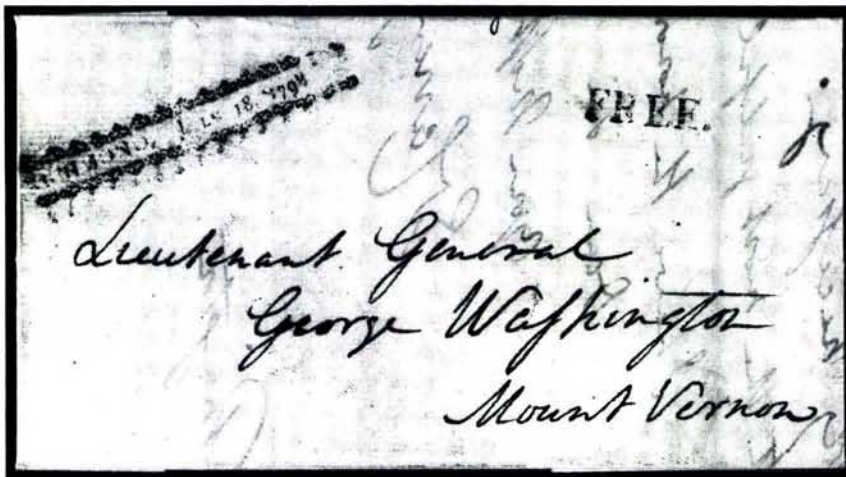 RICHMOND, Dec 18. 1798
FREE.
Lieutenant General
George Waſhington
Mount Vernon